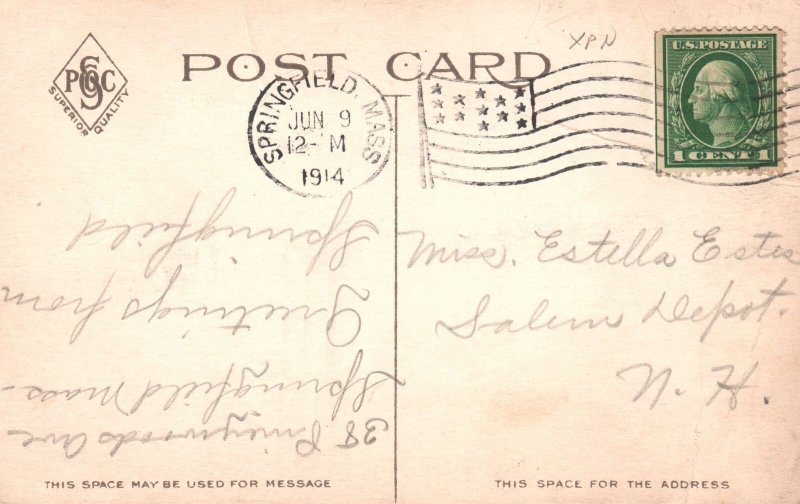 POST CARD
XPN
S
P C
SUPERIOR QUALITY
SPRINGFIELD, MASS
JUN 9
12- M
1914
U.S. POSTAGE
1 CENT 1
38 Pineywoods Ave
Springfield Mass-
Greetings from
Springfield
Miss. Estella Estes
Salem Depot.
N. H.
THIS SPACE MAY BE USED FOR MESSAGE
THIS SPACE FOR THE ADDRESS